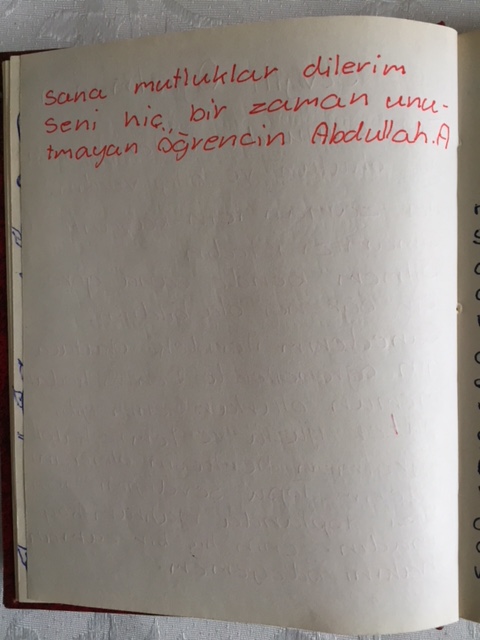 sana mutluklar dilerim
seni hiç bir zaman unu-
tmayan öğrencin Abdullah.A